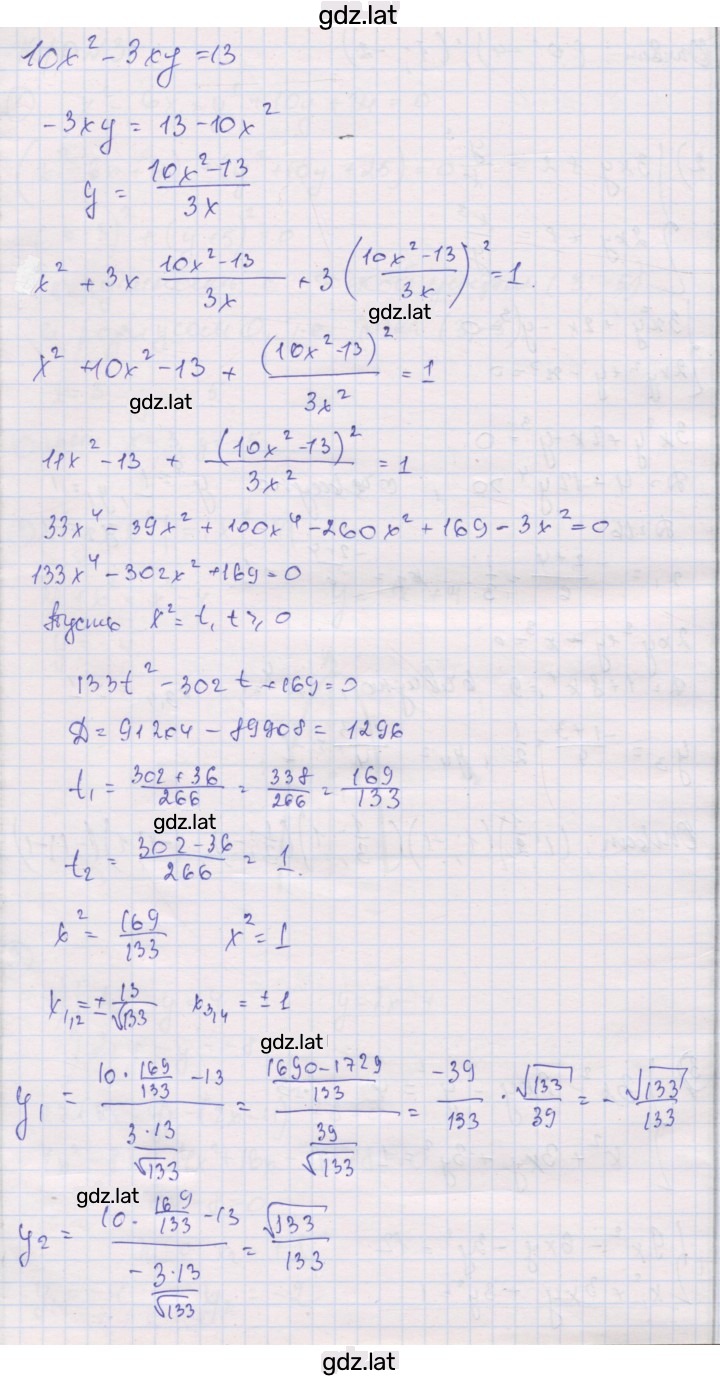 gdz.lat
10x² - 3xy = 13
-3xy = 13 - 10x²
y = (10x² - 13)/(3x)
x² + 3x (10x² - 13)/(3x) + 3((10x² - 13)/(3x))² = 1.
gdz.lat
x² + 10x² - 13 + (10x² - 13)²/(3x²) = 1
gdz.lat
11x² - 13 + (10x² - 13)²/(3x²) = 1
33x⁴ - 39x² + 100x⁴ - 260x² + 169 - 3x² = 0
133x⁴ - 302x² + 169 = 0
Пусть x² = t, t ⩾ 0
133t² - 302t + 169 = 0
D = 91204 - 89908 = 1296
t₁ = (302 + 36)/266 = 338/266 = 169/133
gdz.lat
t₂ = (302 - 36)/266 = 1.
x² = 169/133 x² = 1
x₁,₂ = ± 13/√133 x₃,₄ = ± 1
gdz.lat
y₁ = (10 · 169/133 - 13)/(3·13/√133) = ((1690 - 1729)/133)/(39/√133) = -39/133 · √133/39 = - √133/133
gdz.lat
y₂ = (10 · 169/133 - 13)/(- 3·13/√133) = √133/133
gdz.lat